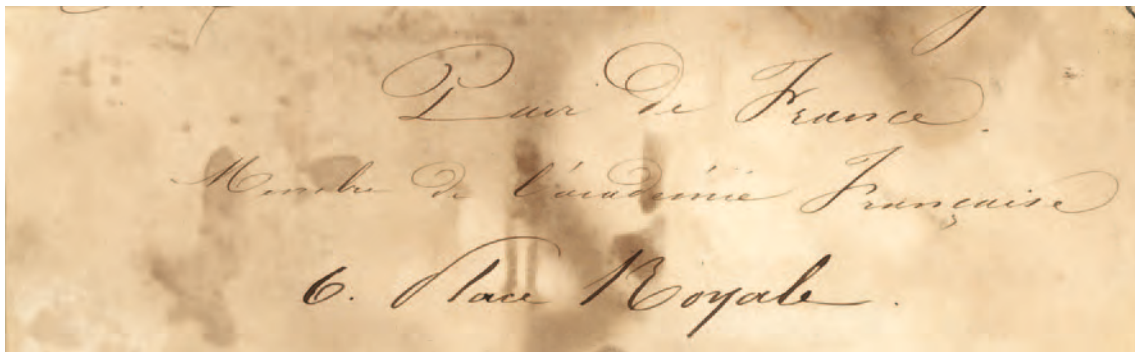 Pair de France.
Membre de l'académie Française
6. Place Royale.